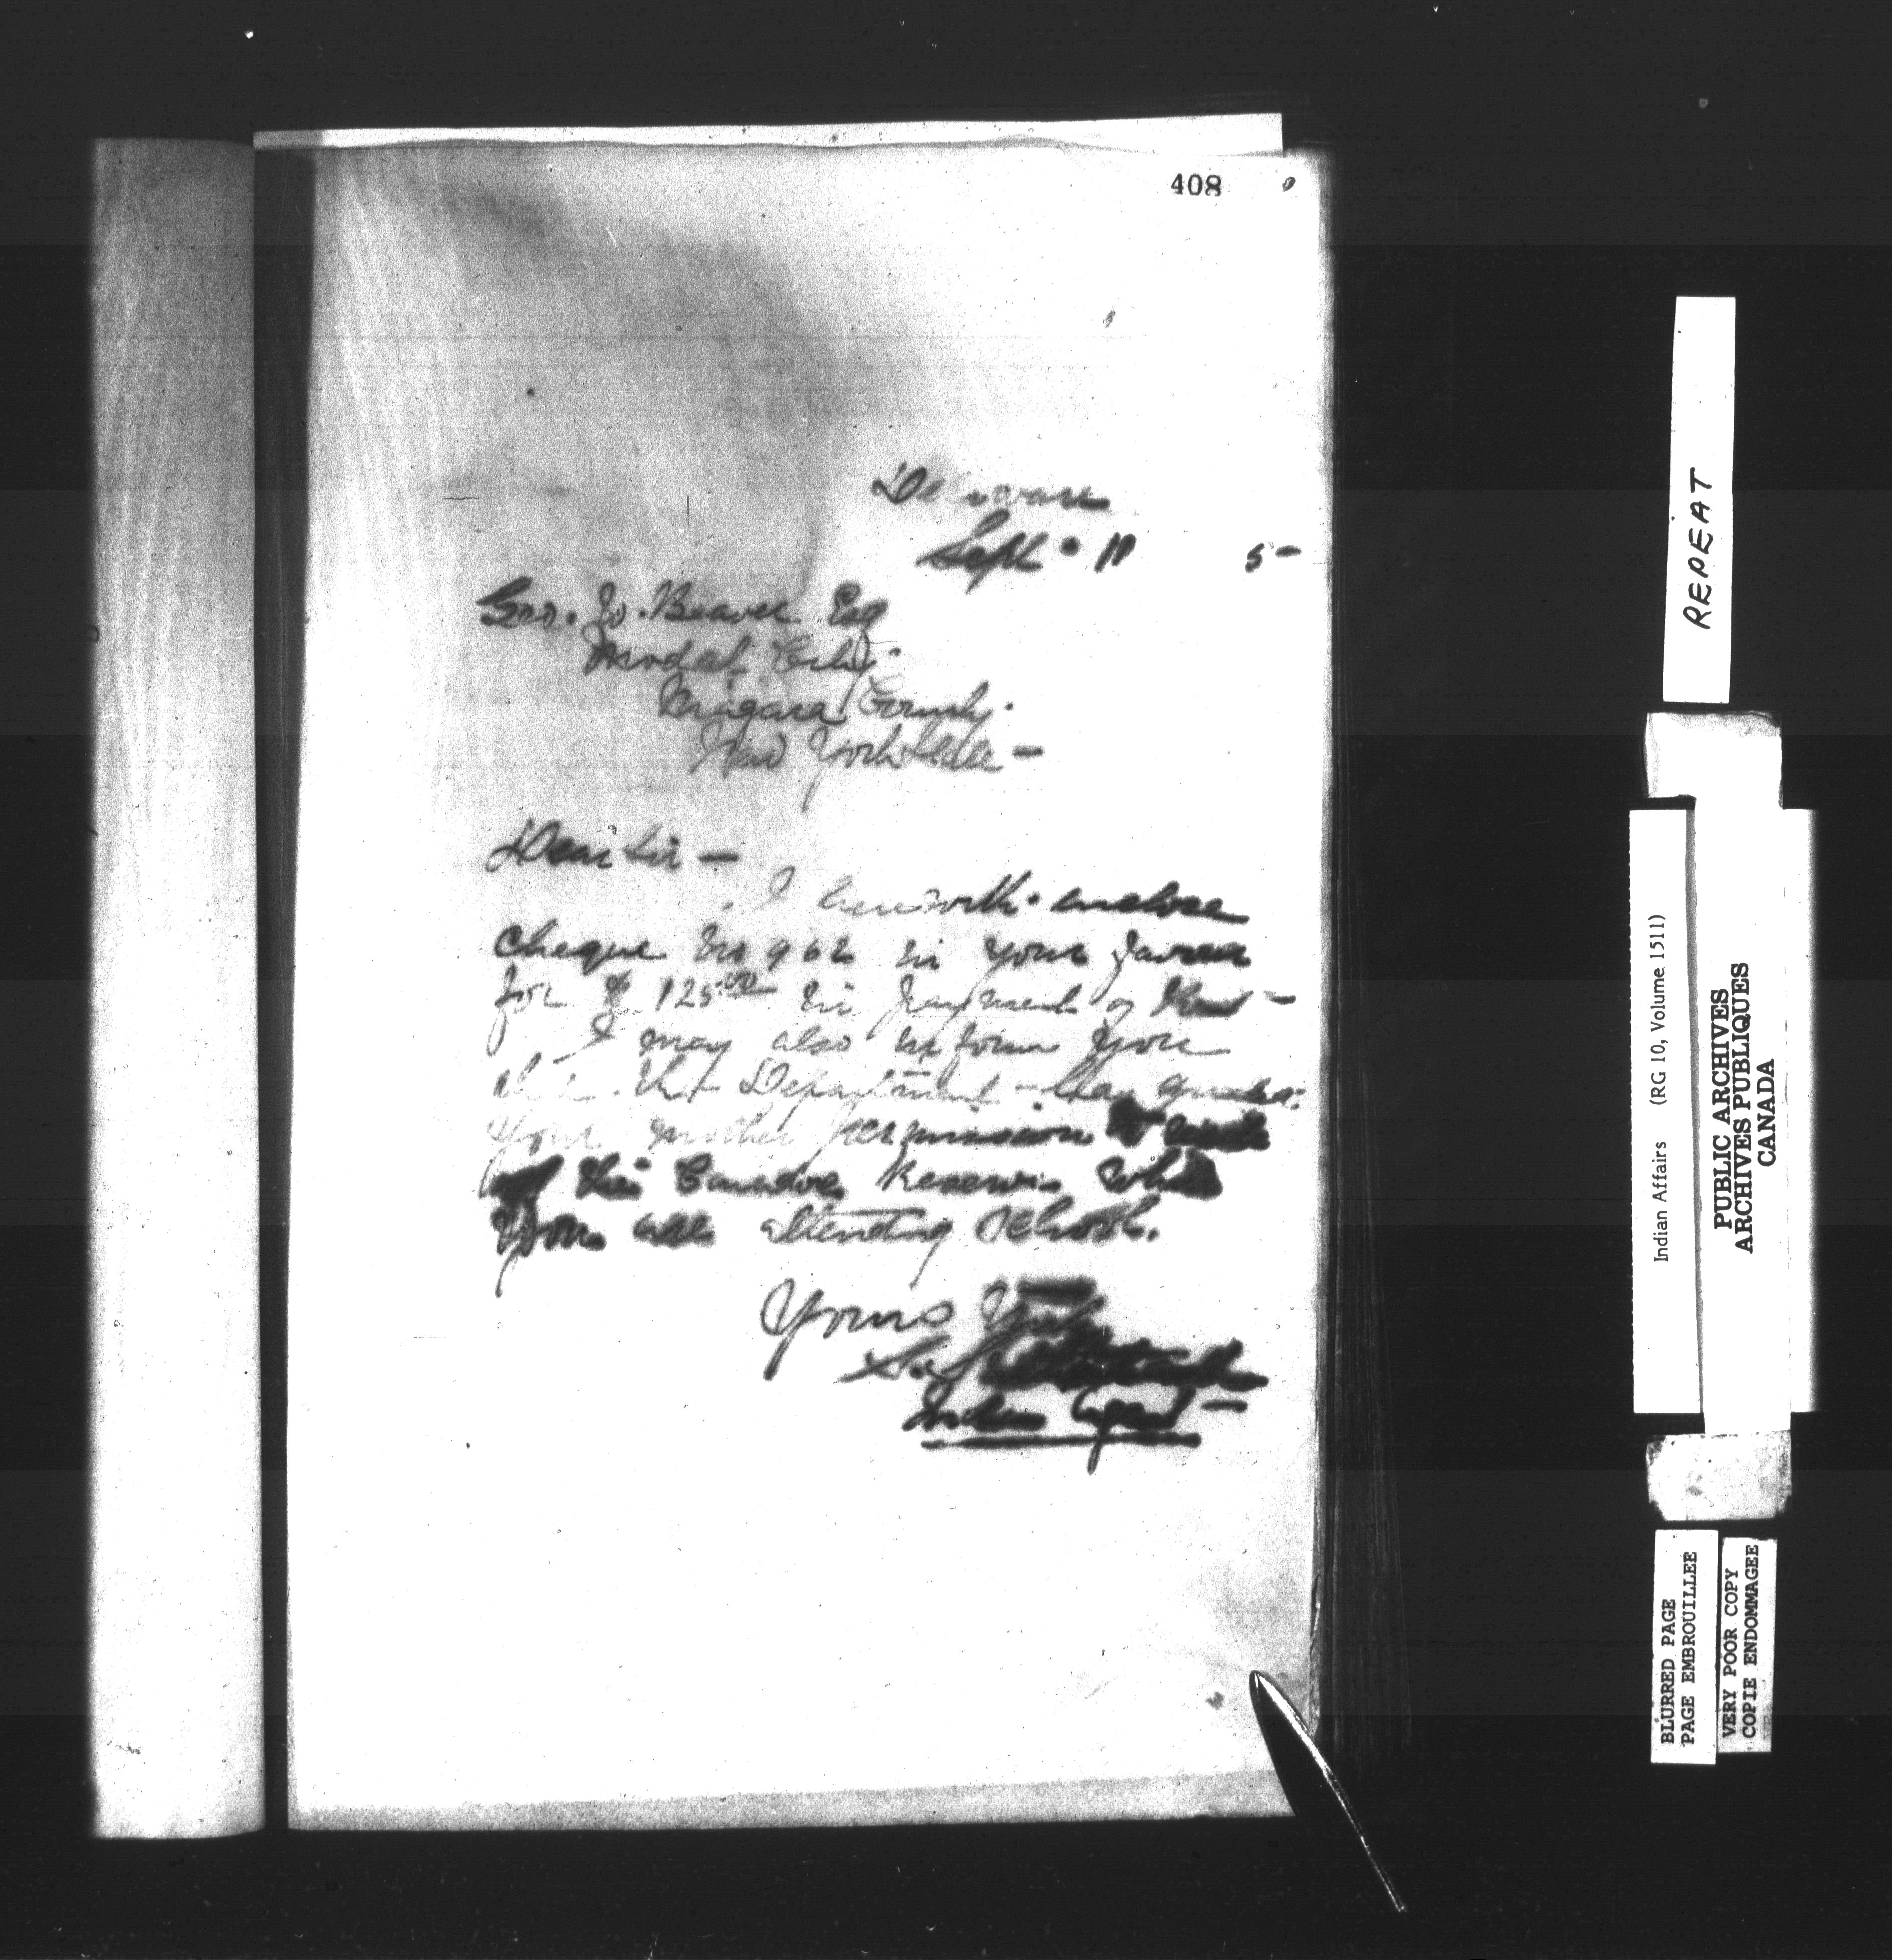 408
Delaware
Sept 11 5-
Geo. W. Beaver Esq
Model City.
Niagara County.
New York State -
Dear Sir -
I herewith enclose
cheque No 962 in your favour
for $ 125.00 in payment of Rent -
I may also inform you
that the Department has granted
your mother permission to reside
on the Reserve while
you are attending school.
Yours
Indian Agent -
REPEAT
Indian Affairs (RG 10, Volume 1511)
PUBLIC ARCHIVES
ARCHIVES PUBLIQUES
CANADA
BLURRED PAGE
PAGE EMBROUILLEE
VERY POOR COPY
COPIE ENDOMMAGEE